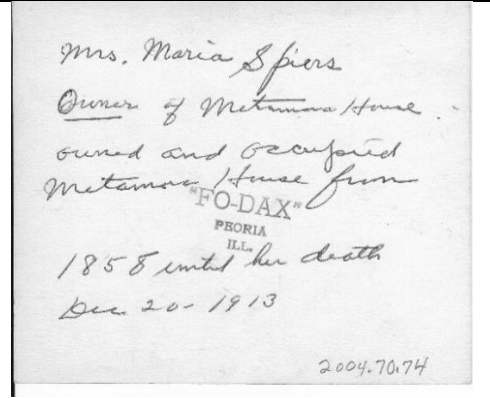 Mrs. Maria Spiers
Owner of Metamora House.
owned and occupied
Metamora House from
"FO-DAX"
PEORIA
ILL.
1858 until her death
Dec. 20 - 1913
2004.70.74